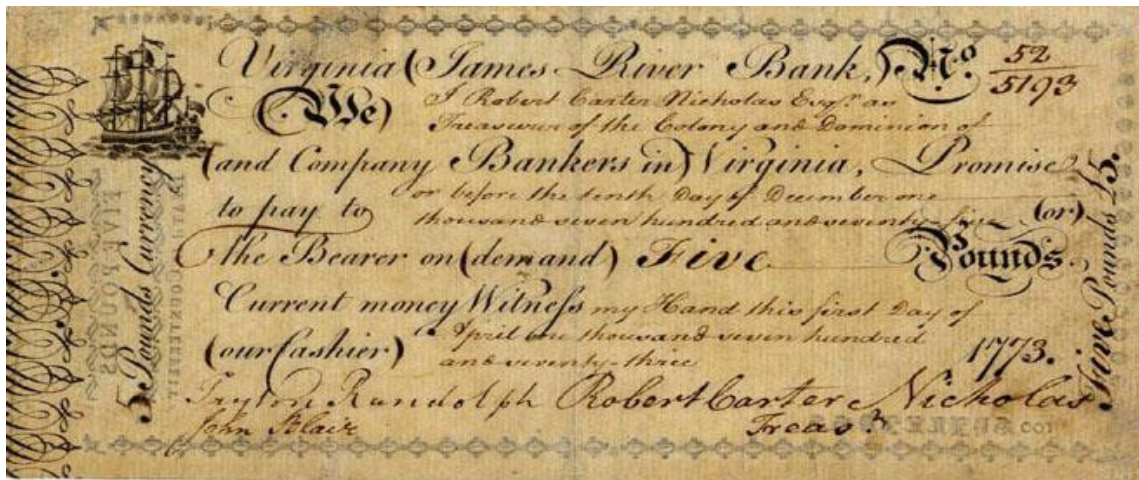 Virginia (James River Bank,) No. 52
5193
(We) I Robert Carter Nicholas Esqr. as
Treasurer of the Colony and Dominion of
(and Company Bankers in) Virginia, Promise
to pay to on or before the tenth Day of December one
thousand seven hundred and seventy-five (or)
the Bearer on (demand) Five Pounds
Current money Witness my Hand this first Day of
(our Cashier) April one thousand seven hundred
and seventy-three 1773.
Peyton Randolph Robert Carter Nicholas
John Blair Treasr
5 Pounds Currency
FIVE POUNDS
Five Pounds £5.